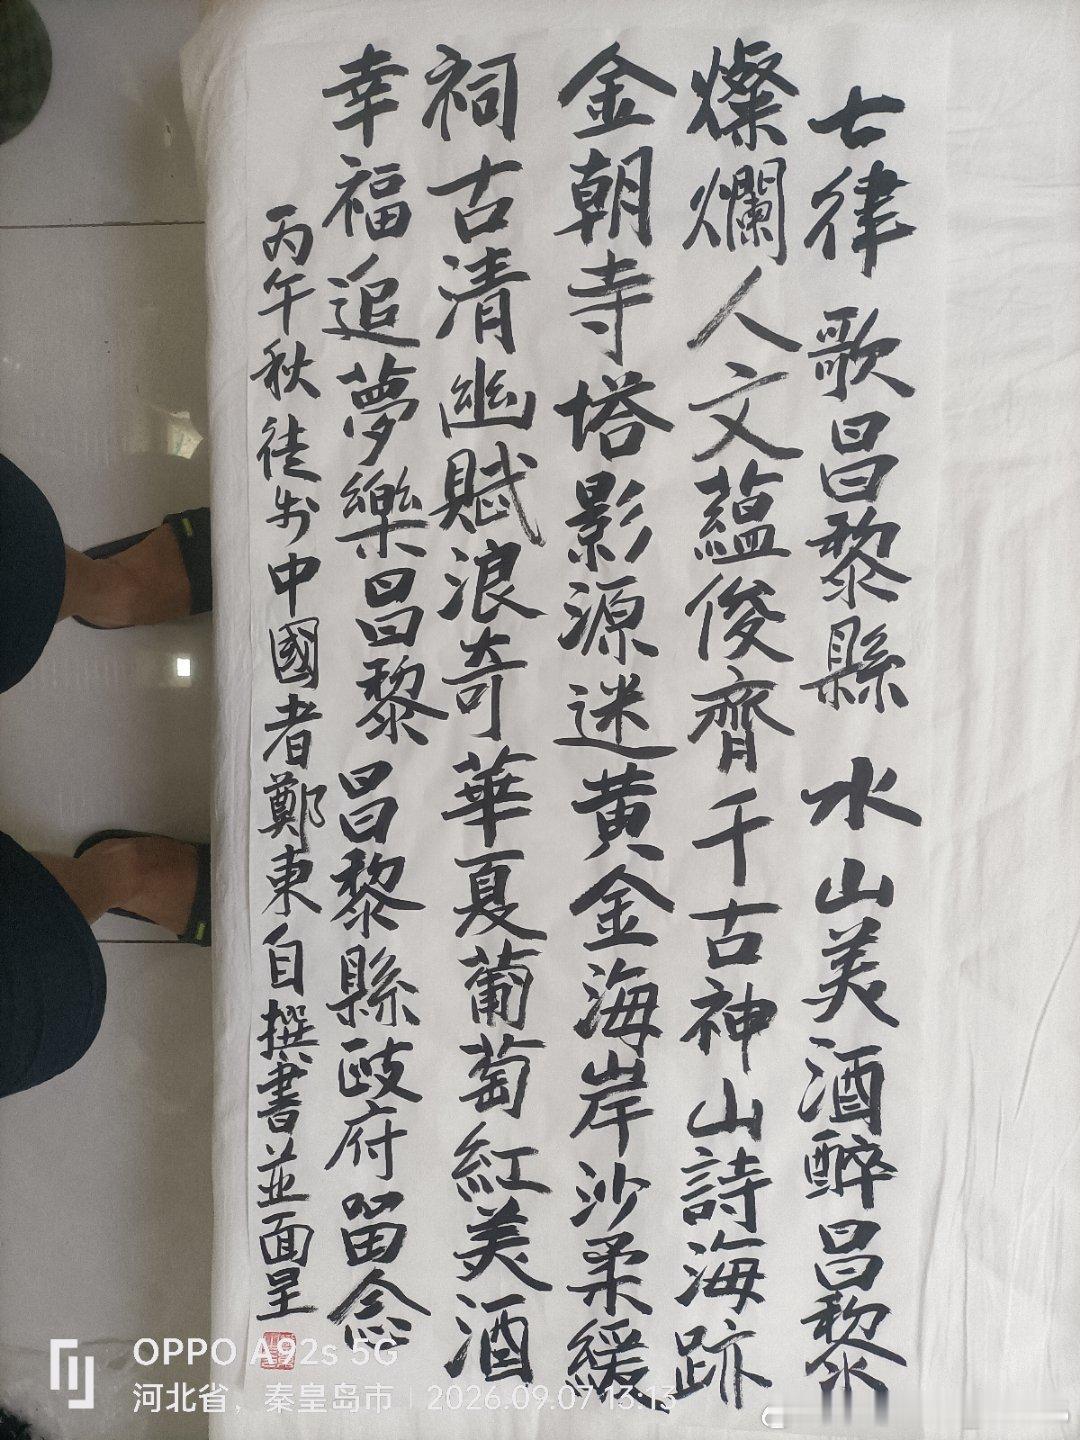 七律 歌昌黎縣 水山美酒醉昌黎
燦爛人文蘊俊齊千古神山詩海跡
金朝寺塔影源迷黄金海岸沙柔緩
祠古清幽賦浪奇華夏葡萄紅美酒
幸福追夢樂昌黎 昌黎縣政府留念
丙午秋徒步中國者鄭東自撰書並面呈
OPPO A92s 5G
河北省，秦皇岛市 2026.09.07 13:13